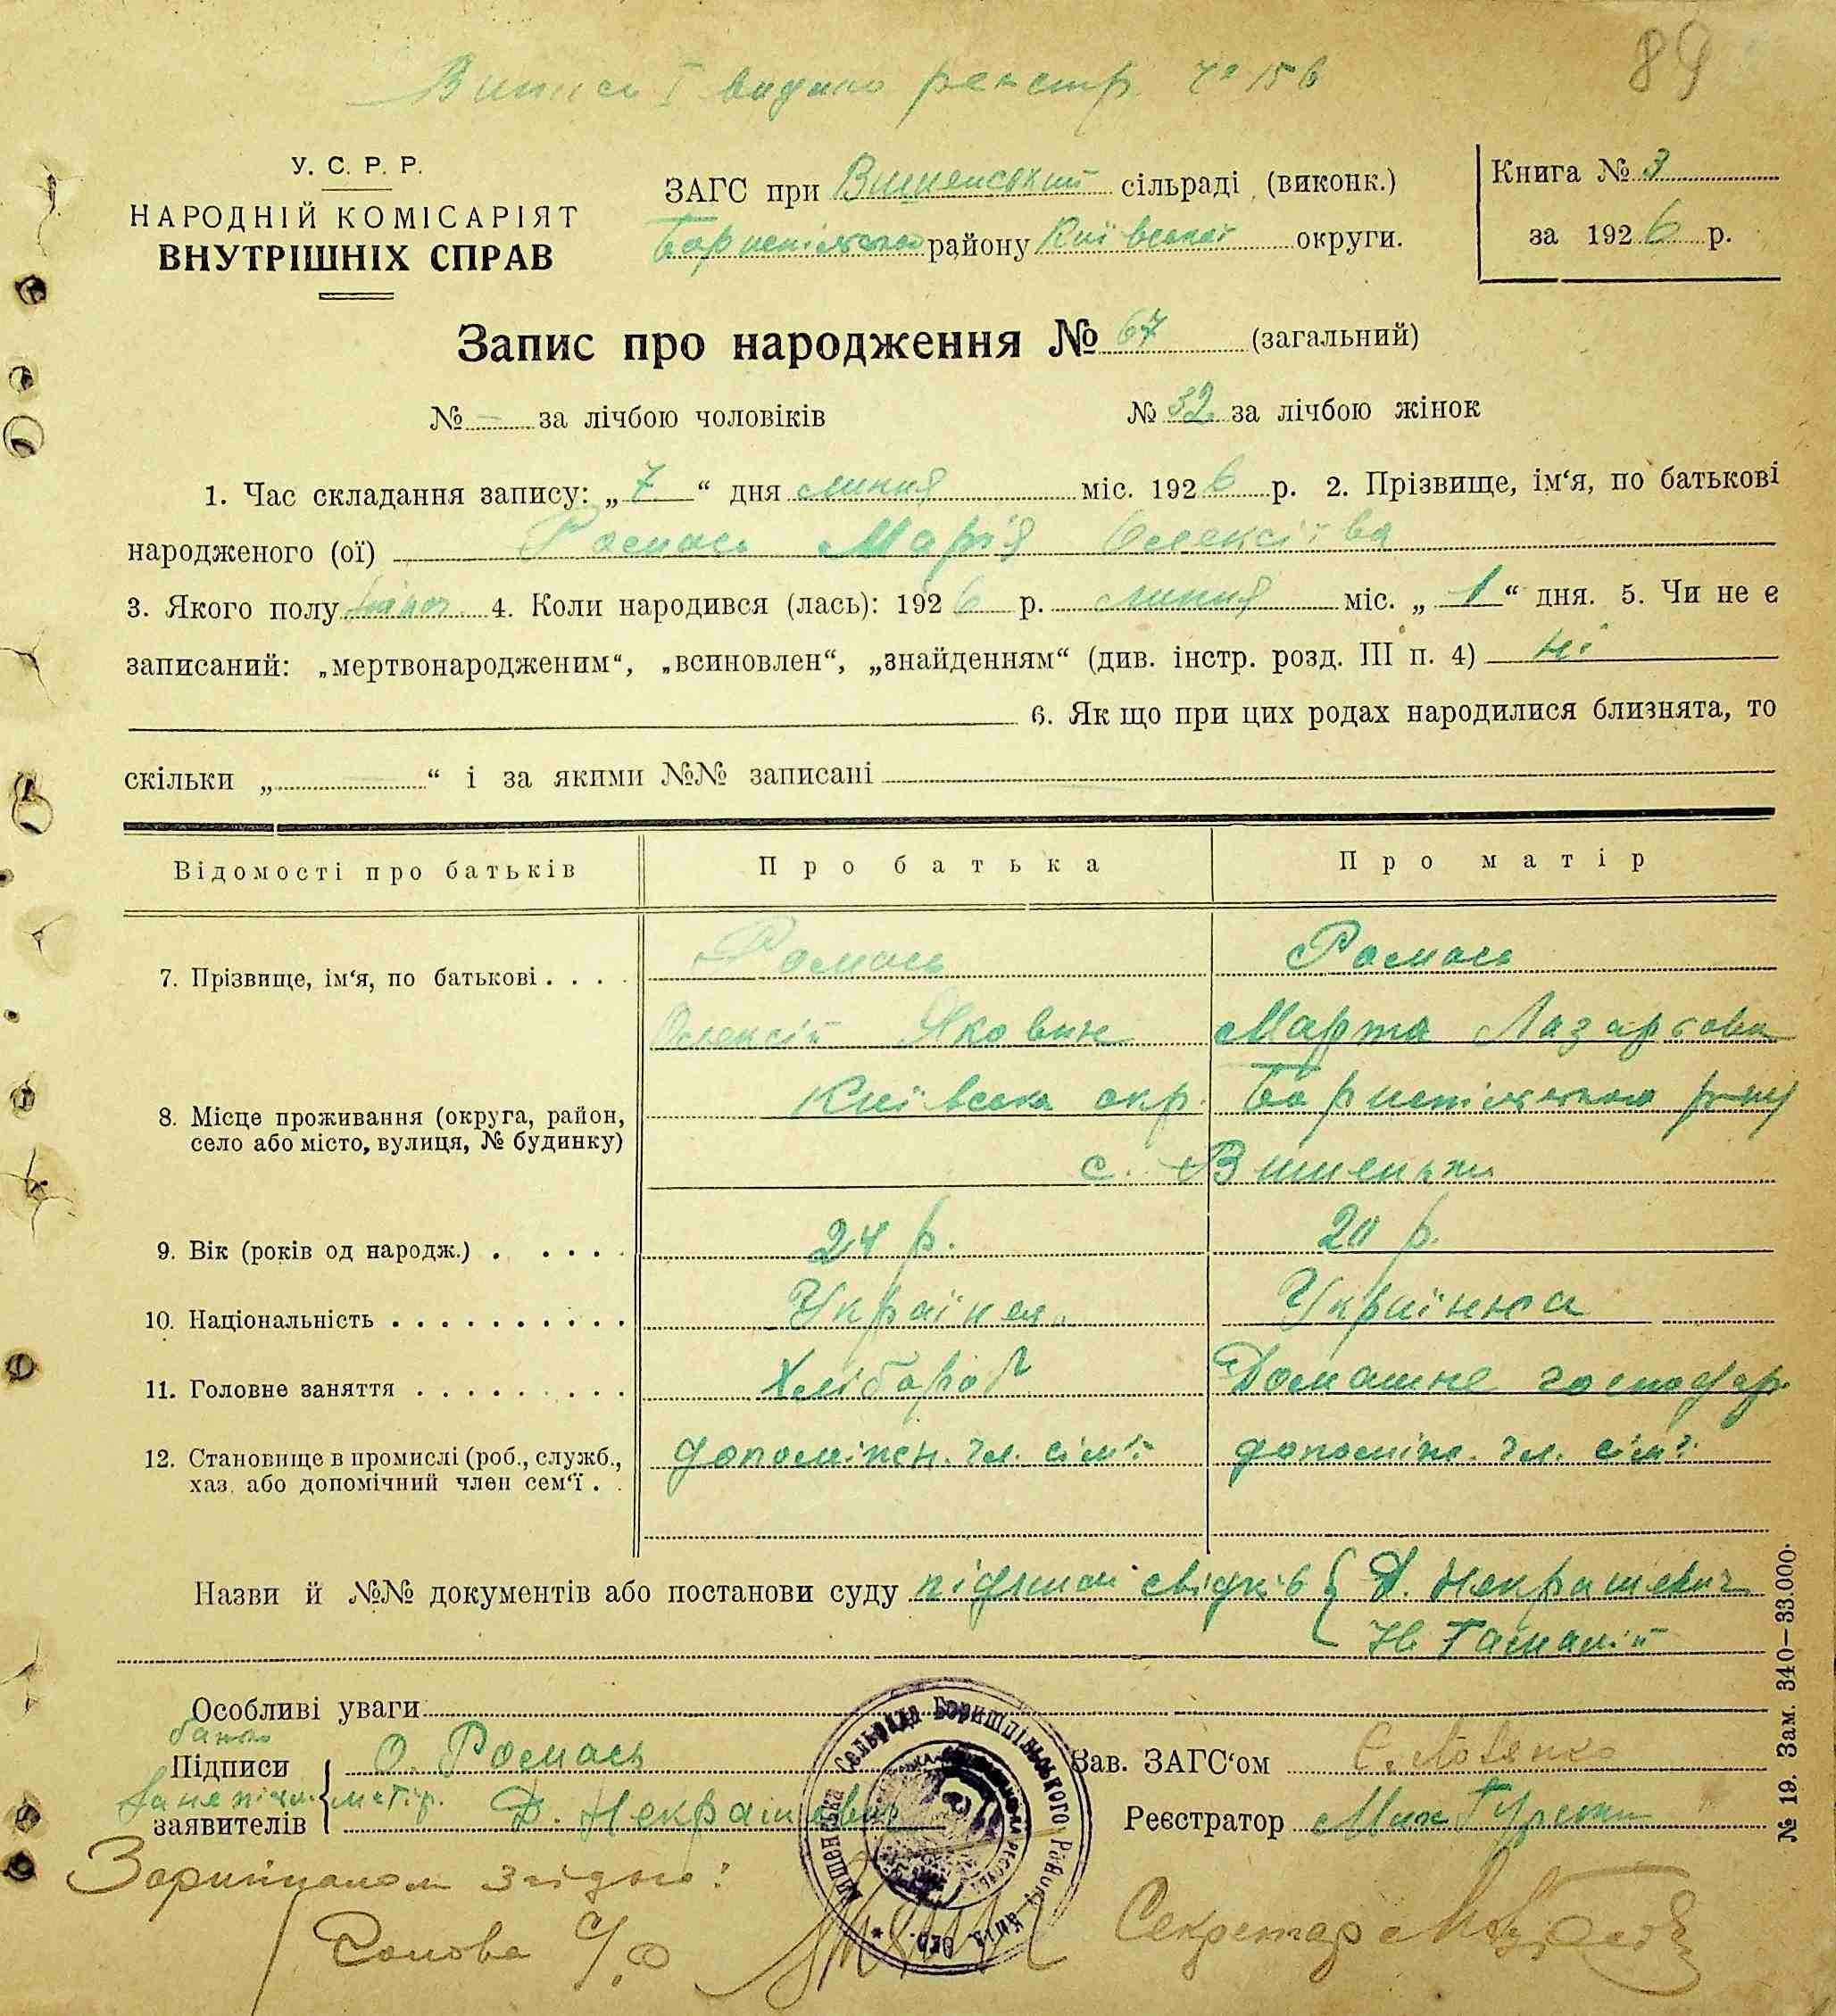 Випис I видано реєстр. № 156
89
У. С. Р. Р.
НАРОДНІЙ КОМІСАРІЯТ
ВНУТРІШНІХ СПРАВ
ЗАГС при Вишенський сільраді (виконк.)
району Київської округи.
Книга № 3
за 1926 р.
Запис про народження № 67 (загальний)
№ — за лічбою чоловіків
№ 32 за лічбою жінок
1. Час складання запису: „7“ дня липня міс. 1926 р. 2. Прізвище, ім‘я, по батькові
народженого (ої) Ромась Марія Олексіївa
3. Якого полу жіноч. 4. Коли народився (лась): 1926 р. липня міс. „1“ дня. 5. Чи не є
записаний: „мертвонародженим“, „всиновлен“, „знайденням“ (див. інстр. розд. III п. 4) ні
6. Як що при цих родах народилися близнята, то
скільки „ “ і за якими №№ записані
Відомості про батьків
Про батька
Про матір
7. Прізвище, ім‘я, по батькові . . . .
Ромась
Ромась
Олексій Якович
Марта Лазарівна
8. Місце проживання (округа, район,
село або місто, вулиця, № будинку)
Київська окр.
с. Вишеньки
9. Вік (років од народж.) . . . . .
24 р.
20 р.
10. Національність . . . . . . . . . .
Українець
Українка
11. Головне заняття . . . . . . . . .
Хлібороб
Домашнє господар.
12. Становище в промислі (роб., служб.,
хаз. або допомічний член сем‘ї . .
допоміжн. чл. сім'ї
допоміж. чл. сім'ї
Назви й №№ документів або постанови суду свідків { Д. Некрашевич
Н Гамалій
Особливі уваги
Підписи
заявителів
О. Ромась
матір. Д. Некрашевич
Зав. ЗАГС‘ом
Реєстратор Мих
Вишенська Сельрада Боришпільського Району Київ. Окр.
№ 19. Зам. 340—33.000.
Зоригіналом згідно:
Голова С/Р
Секретар